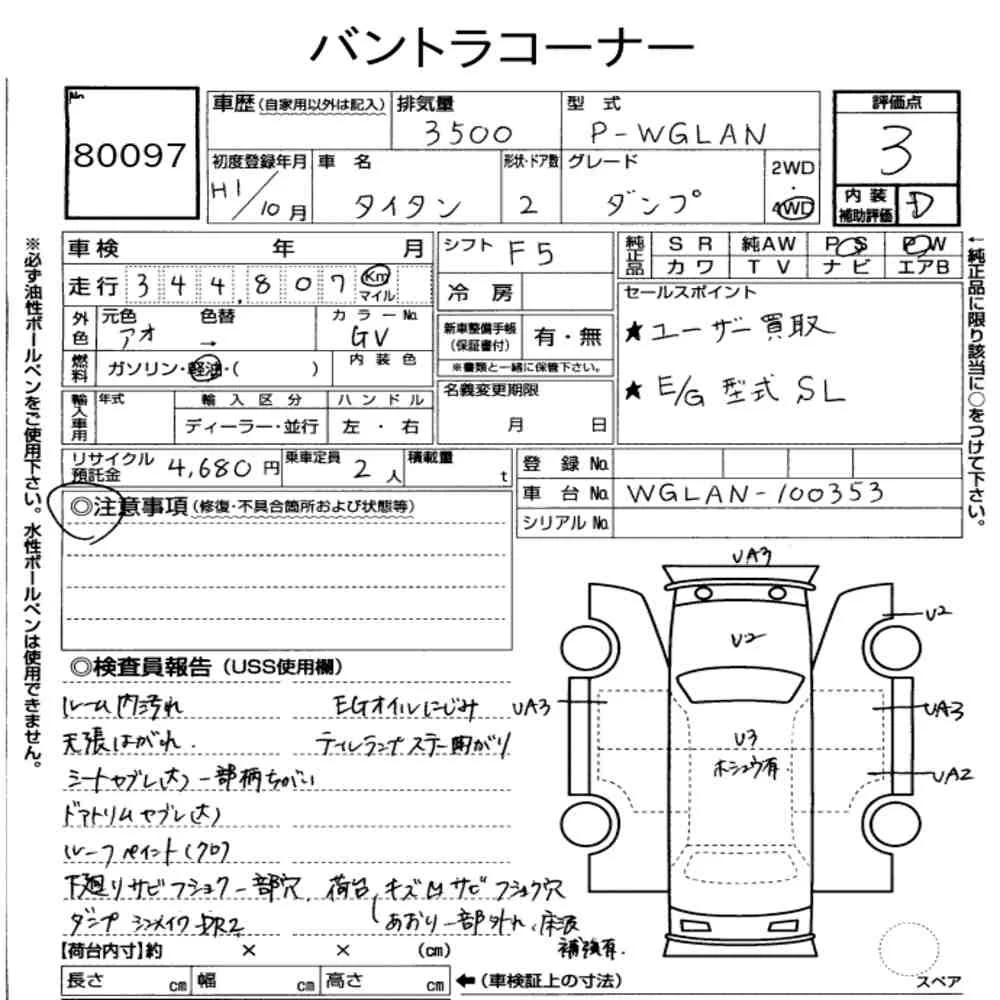 バントラコーナー
No.
80097
車歴 (自家用以外は記入)
排気量
3500
型式
P-WGLAN
評価点
3
初度登録年月
H1/10月
車名
タイタン
形状・ドア数
2
グレード
ダンプ
2WD
・
4WD
内装
補助評価
D
※必ず油性ボールペンをご使用下さい。水性ボールペンは使用できません。
車検 年 月
シフト F5
純正品
SR 純AW PS PW
カワ TV ナビ エアB
←純正品に限り該当に○をつけて下さい。
走行 344,807 Km
マイル
冷房
セールスポイント
★ユーザー買取
★E/G型式 SL
外色
元色 色替
アオ →
カラーNo.
GV
新車整備手帳
(保証書付)
有・無
※書類と一緒に保管下さい。
燃料
ガソリン・軽油・( )
内装色
名義変更期限
月 日
輸入車用
年式
輸入区分
ディーラー・並行
ハンドル
左・右
リサイクル
預託金
4,680円
乗車定員
2人
積載量
t
登録No.
車台No. WGLAN-100353
シリアルNo.
◎注意事項 (修復・不具合箇所および状態等)
◎検査員報告 (USS使用欄)
ルーム内汚れ EGオイルにじみ
天張はがれ. テイルランプステー曲がり
シートヤブレ(大) 一部柄ちがい
ドアトリムヤブレ(大)
ルーフペイント(クロ)
下廻りサビフショク一部穴 荷台 キズ凹サビフショク穴
ダンプ シンメイワ DR2 あおり一部外れ、床板
補強有.
UA3
U2
U2
UA3
UA3
U3
ホシュウ有
UA2
【荷台内寸】約 × × (cm)
長さ cm 幅 cm 高さ cm ←(車検証上の寸法)
スペア